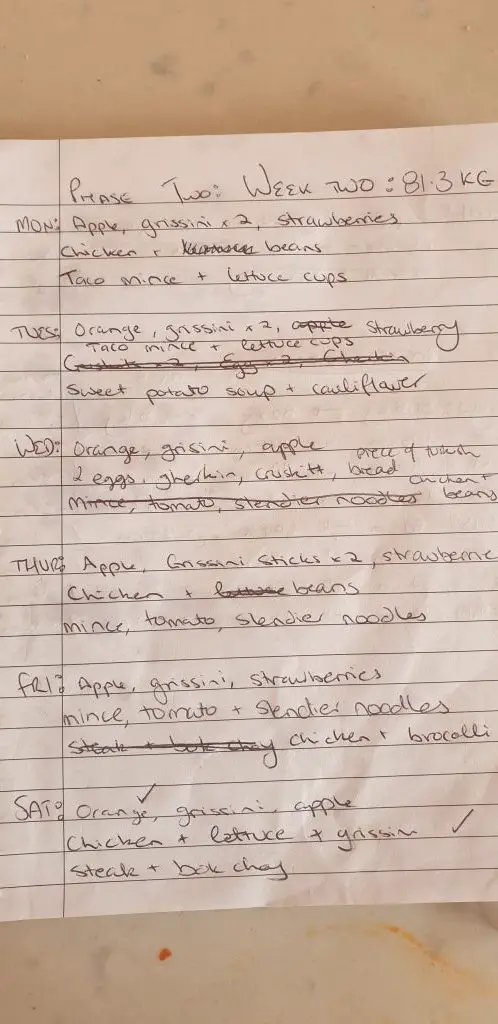 PHASE TWO: WEEK TWO: 81.3 KG
MON: Apple, grissini x 2, strawberries
Chicken + beans
Taco mince + lettuce cups
TUES: Orange, grissini x 2, apple strawberry
Taco mince + lettuce cups
Cruskits x 2, Egg x 2, Gherkin
Sweet potato soup + cauliflower
WED: Orange, grisini, apple piece of turkish
2 eggs, gherkin, cruskitt, bread chicken +
Mince, tomato, slendier noodles beans
THUR: Apple, Grissini Sticks x 2, strawberrie
Chicken + lettuce beans
mince, tomato, slendier noodles
FRI: Apple, grissini, strawberries
mince, tomato + slendier noodles
Steak + bok choy chicken + brocolli
SAT: Orange, grissini, apple
Chicken + lettuce + grissini
Steak + bok choy